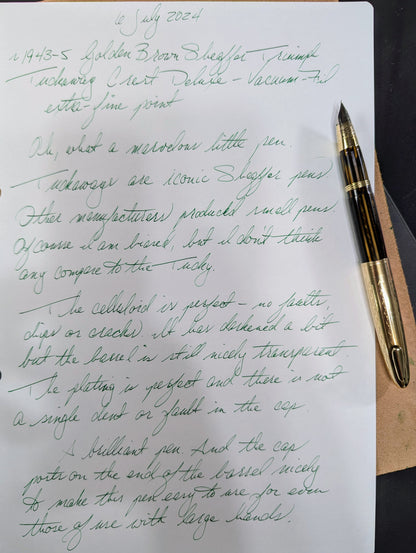 6 July 2024
~1943-5 Golden Brown Sheaffer Triumph
Tuckaway Crest Deluxe - Vacuum-Fil
extra-fine point
Oh, what a marvelous little pen.
Tuckaways are iconic Sheaffer pens
Other manufacturers produced small pens.
Of course I am biased, but I don't think
any compare to the Tucky.
The celluloid is perfect - no faults,
dips or cracks. It has darkened a bit
but the barrel is still nicely transparent.
The plating is perfect and there is not
a single dent or fault in the cap.
A brilliant pen. And the cap
posts on the end of the barrel nicely
to make this pen easy to use for even
those of us with large hands.